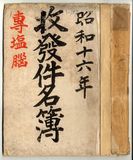 昭和十六年
收發件名簿
專塩腦